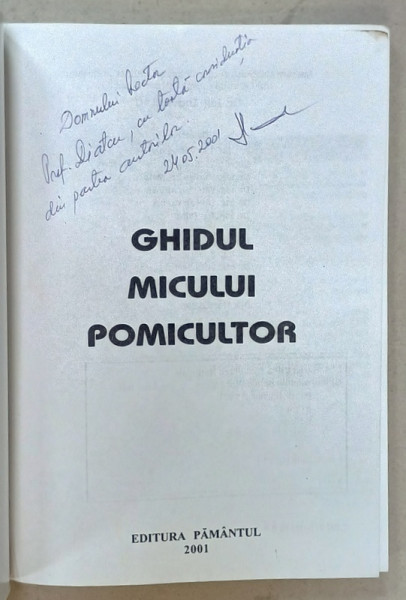 Domnului Rector
Prof. Diatcu, cu toată considerația
din partea autorilor.
24.05.2001
GHIDUL
MICULUI
POMICULTOR
EDITURA PĂMÂNTUL
2001